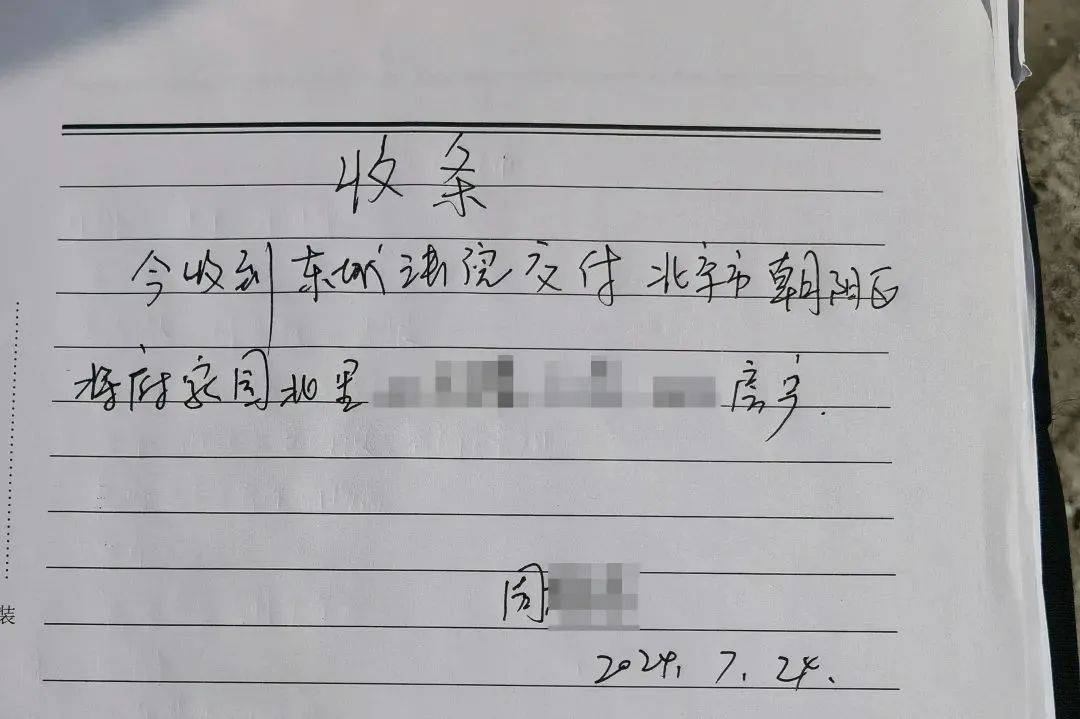 收条
今收到东城法院交付北京市朝阳区
将府家园北里房字.
周
2024.7.24.
装